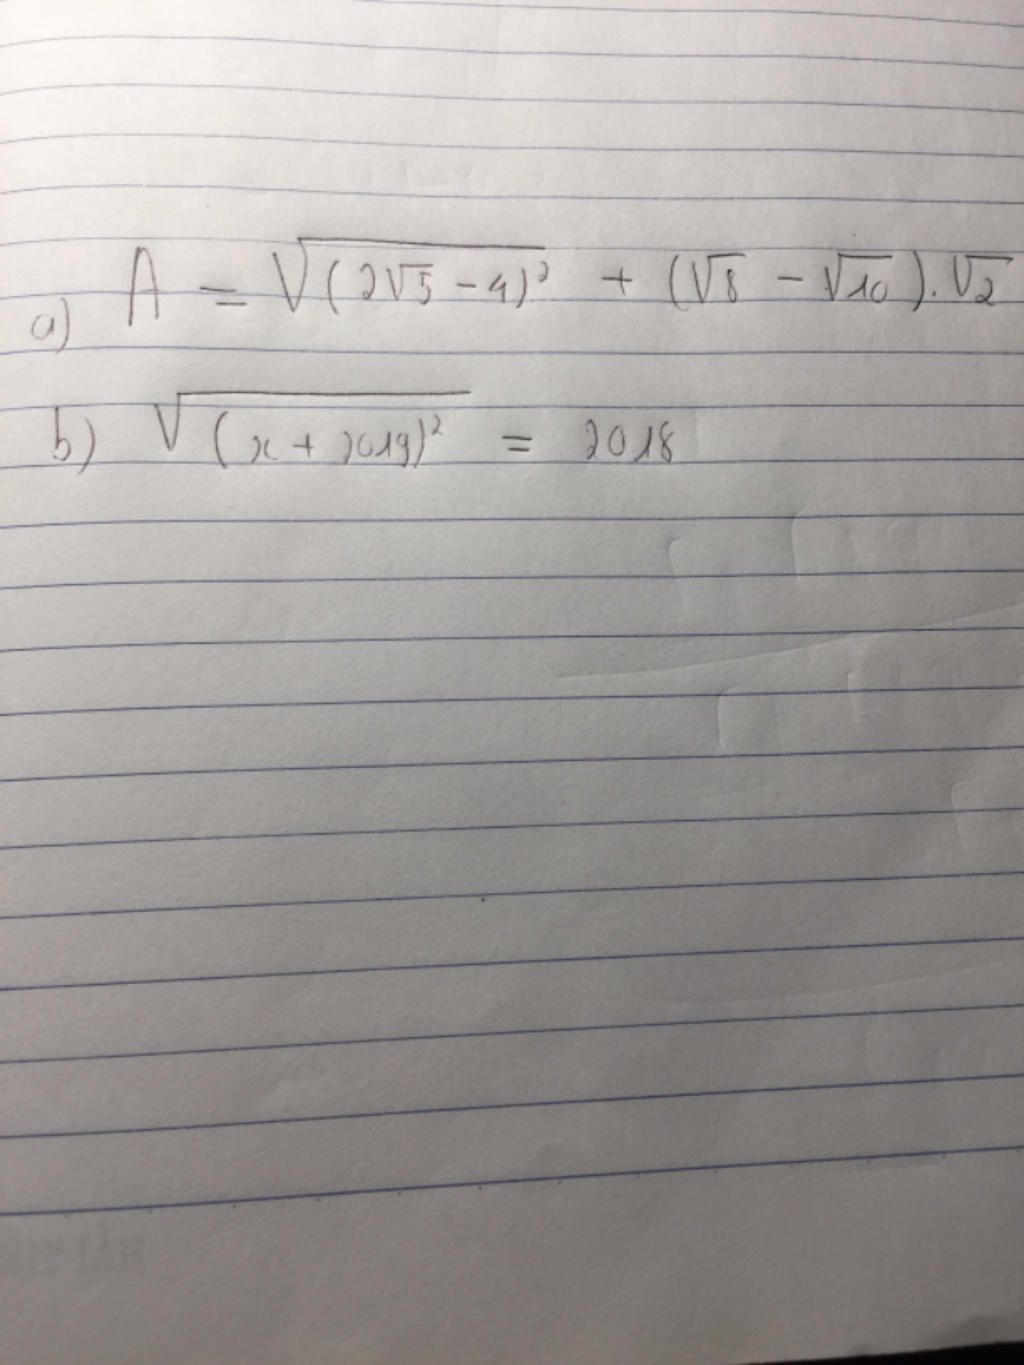 a) A = √(2√5 - 4)² + (√8 - √10).√2
b) √(x + 2019)² = 2018